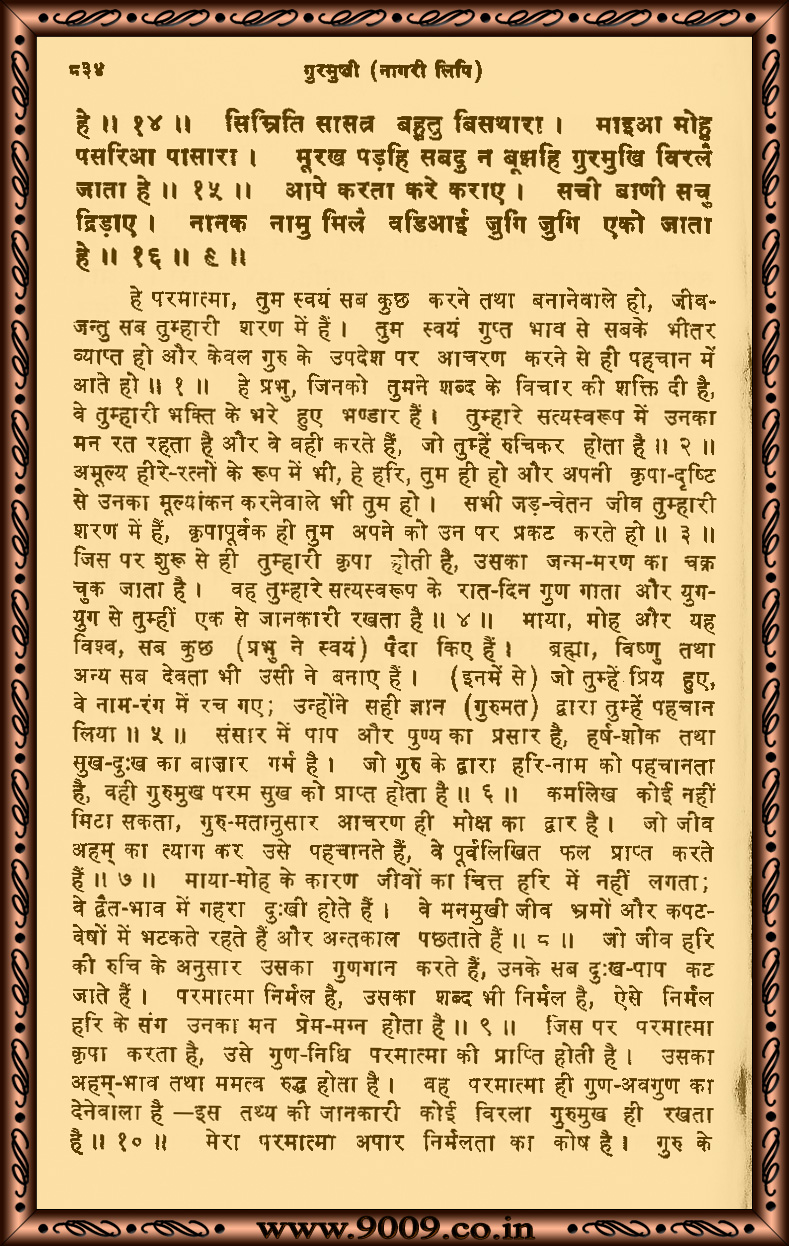 ८३४ गुरमुखी (नागरी लिपि)
हे ॥ १४ ॥ सिम्रिति सासत्र बहुतु बिसथारा । माइआ मोहु
पसरिआ पासारा । मूरख पड़हि सबदु न बूझहि गुरमुखि विरलै
जाता हे ॥ १५ ॥ आपे करता करे कराए । सची बाणी सचु
द्रिड़ाए । नानक नामु मिलै वडिआई जुगि जुगि एको जाता
हे ॥ १६ ॥ ९ ॥
हे परमात्मा, तुम स्वयं सब कुछ करने तथा बनानेवाले हो, जीव-
जन्तु सब तुम्हारी शरण में हैं । तुम स्वयं गुप्त भाव से सबके भीतर
व्याप्त हो और केवल गुरु के उपदेश पर आचरण करने से ही पहचान में
आते हो ॥ १ ॥ हे प्रभु, जिनको तुमने शब्द के विचार की शक्ति दी है,
वे तुम्हारी भक्ति के भरे हुए भण्डार हैं । तुम्हारे सत्यस्वरूप में उनका
मन रत रहता है और वे वही करते हैं, जो तुम्हें रुचिकर होता है ॥ २ ॥
अमूल्य हीरे-रत्नों के रूप में भी, हे हरि, तुम ही हो और अपनी कृपा-दृष्टि
से उनका मूल्यांकन करनेवाले भी तुम हो । सभी जड़-चेतन जीव तुम्हारी
शरण में हैं, कृपापूर्वक ही तुम अपने को उन पर प्रकट करते हो ॥ ३ ॥
जिस पर शुरू से ही तुम्हारी कृपा होती है, उसका जन्म-मरण का चक्र
चुक जाता है । वह तुम्हारे सत्यस्वरूप के रात-दिन गुण गाता और युग-
युग से तुम्हीं एक से जानकारी रखता है ॥ ४ ॥ माया, मोह और यह
विश्व, सब कुछ (प्रभु ने स्वयं) पैदा किए हैं । ब्रह्मा, विष्णु तथा
अन्य सब देवता भी उसी ने बनाए हैं । (इनमें से) जो तुम्हें प्रिय हुए,
वे नाम-रंग में रच गए; उन्होंने सही ज्ञान (गुरुमत) द्वारा तुम्हें पहचान
लिया ॥ ५ ॥ संसार में पाप और पुण्य का प्रसार है, हर्ष-शोक तथा
सुख-दुःख का बाज़ार गर्म है । जो गुरु के द्वारा हरि-नाम को पहचानता
है, वही गुरुमुख परम सुख को प्राप्त होता है ॥ ६ ॥ कर्मालेख कोई नहीं
मिटा सकता, गुरु-मतानुसार आचरण ही मोक्ष का द्वार है । जो जीव
अहम् का त्याग कर उसे पहचानते हैं, वे पूर्वलिखित फल प्राप्त करते
हैं ॥ ७ ॥ माया-मोह के कारण जीवों का चित्त हरि में नहीं लगता;
वे द्वैत-भाव में गहरा दुःखी होते हैं । वे मनमुखी जीव भ्रमों और कपट-
वेषों में भटकते रहते हैं और अन्तकाल पछताते हैं ॥ ८ ॥ जो जीव हरि
की रुचि के अनुसार उसका गुणगान करते हैं, उनके सब दुःख-पाप कट
जाते हैं । परमात्मा निर्मल है, उसका शब्द भी निर्मल है, ऐसे निर्मल
हरि के संग उनका मन प्रेम-मग्न होता है ॥ ९ ॥ जिस पर परमात्मा
कृपा करता है, उसे गुण-निधि परमात्मा की प्राप्ति होती है । उसका
अहम्-भाव तथा ममत्व रुद्ध होता है । वह परमात्मा ही गुण-अवगुण का
देनेवाला है —इस तथ्य की जानकारी कोई विरला गुरुमुख ही रखता
है ॥ १० ॥ मेरा परमात्मा अपार निर्मलता का कोष है । गुरु के
www.9009.co.in